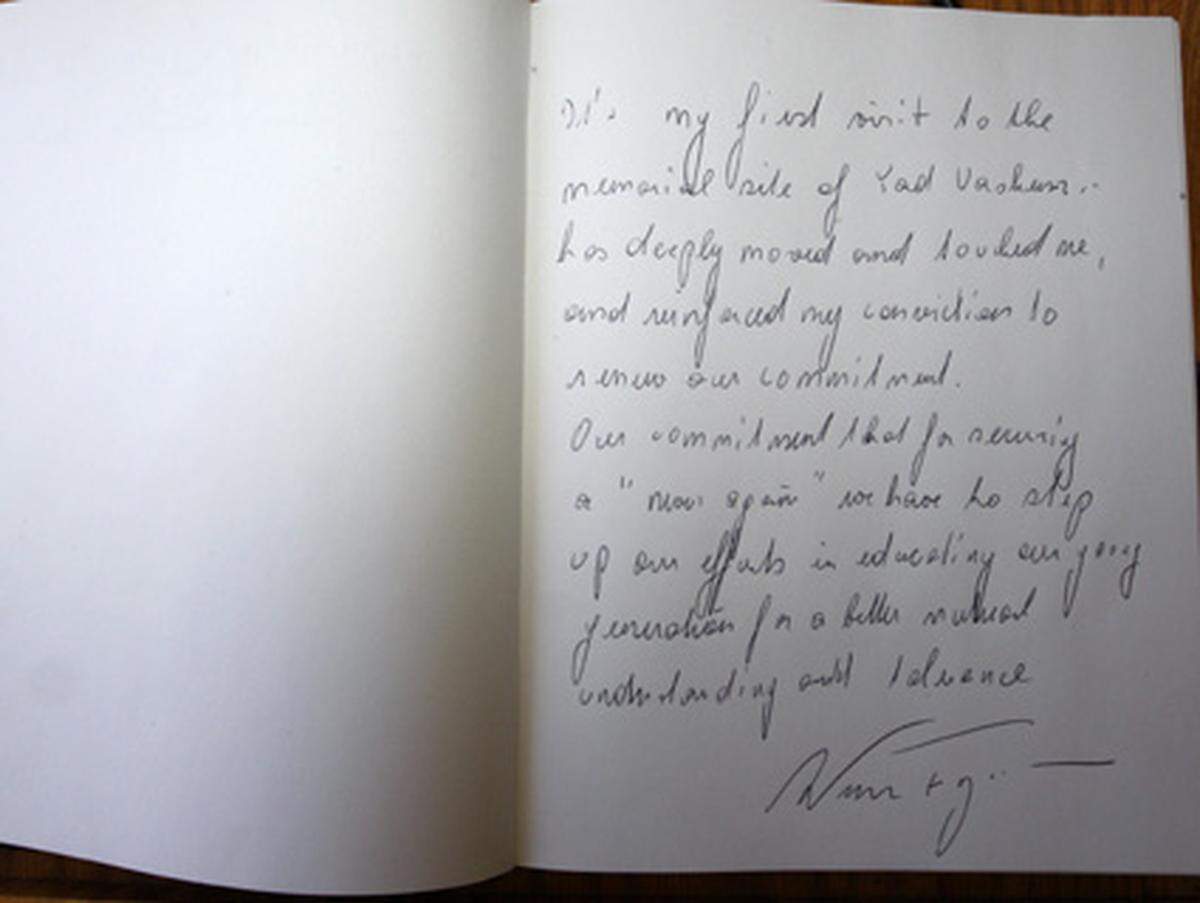 It's my first visit to the
memorial site of Yad Vashem..
has deeply moved and touched me,
and reinforced my conviction to
renew our commitment.
Our commitment that for securing
a "never again" we have to step
up our efforts in educating our young
generation for a better mutual
understanding and tolerance